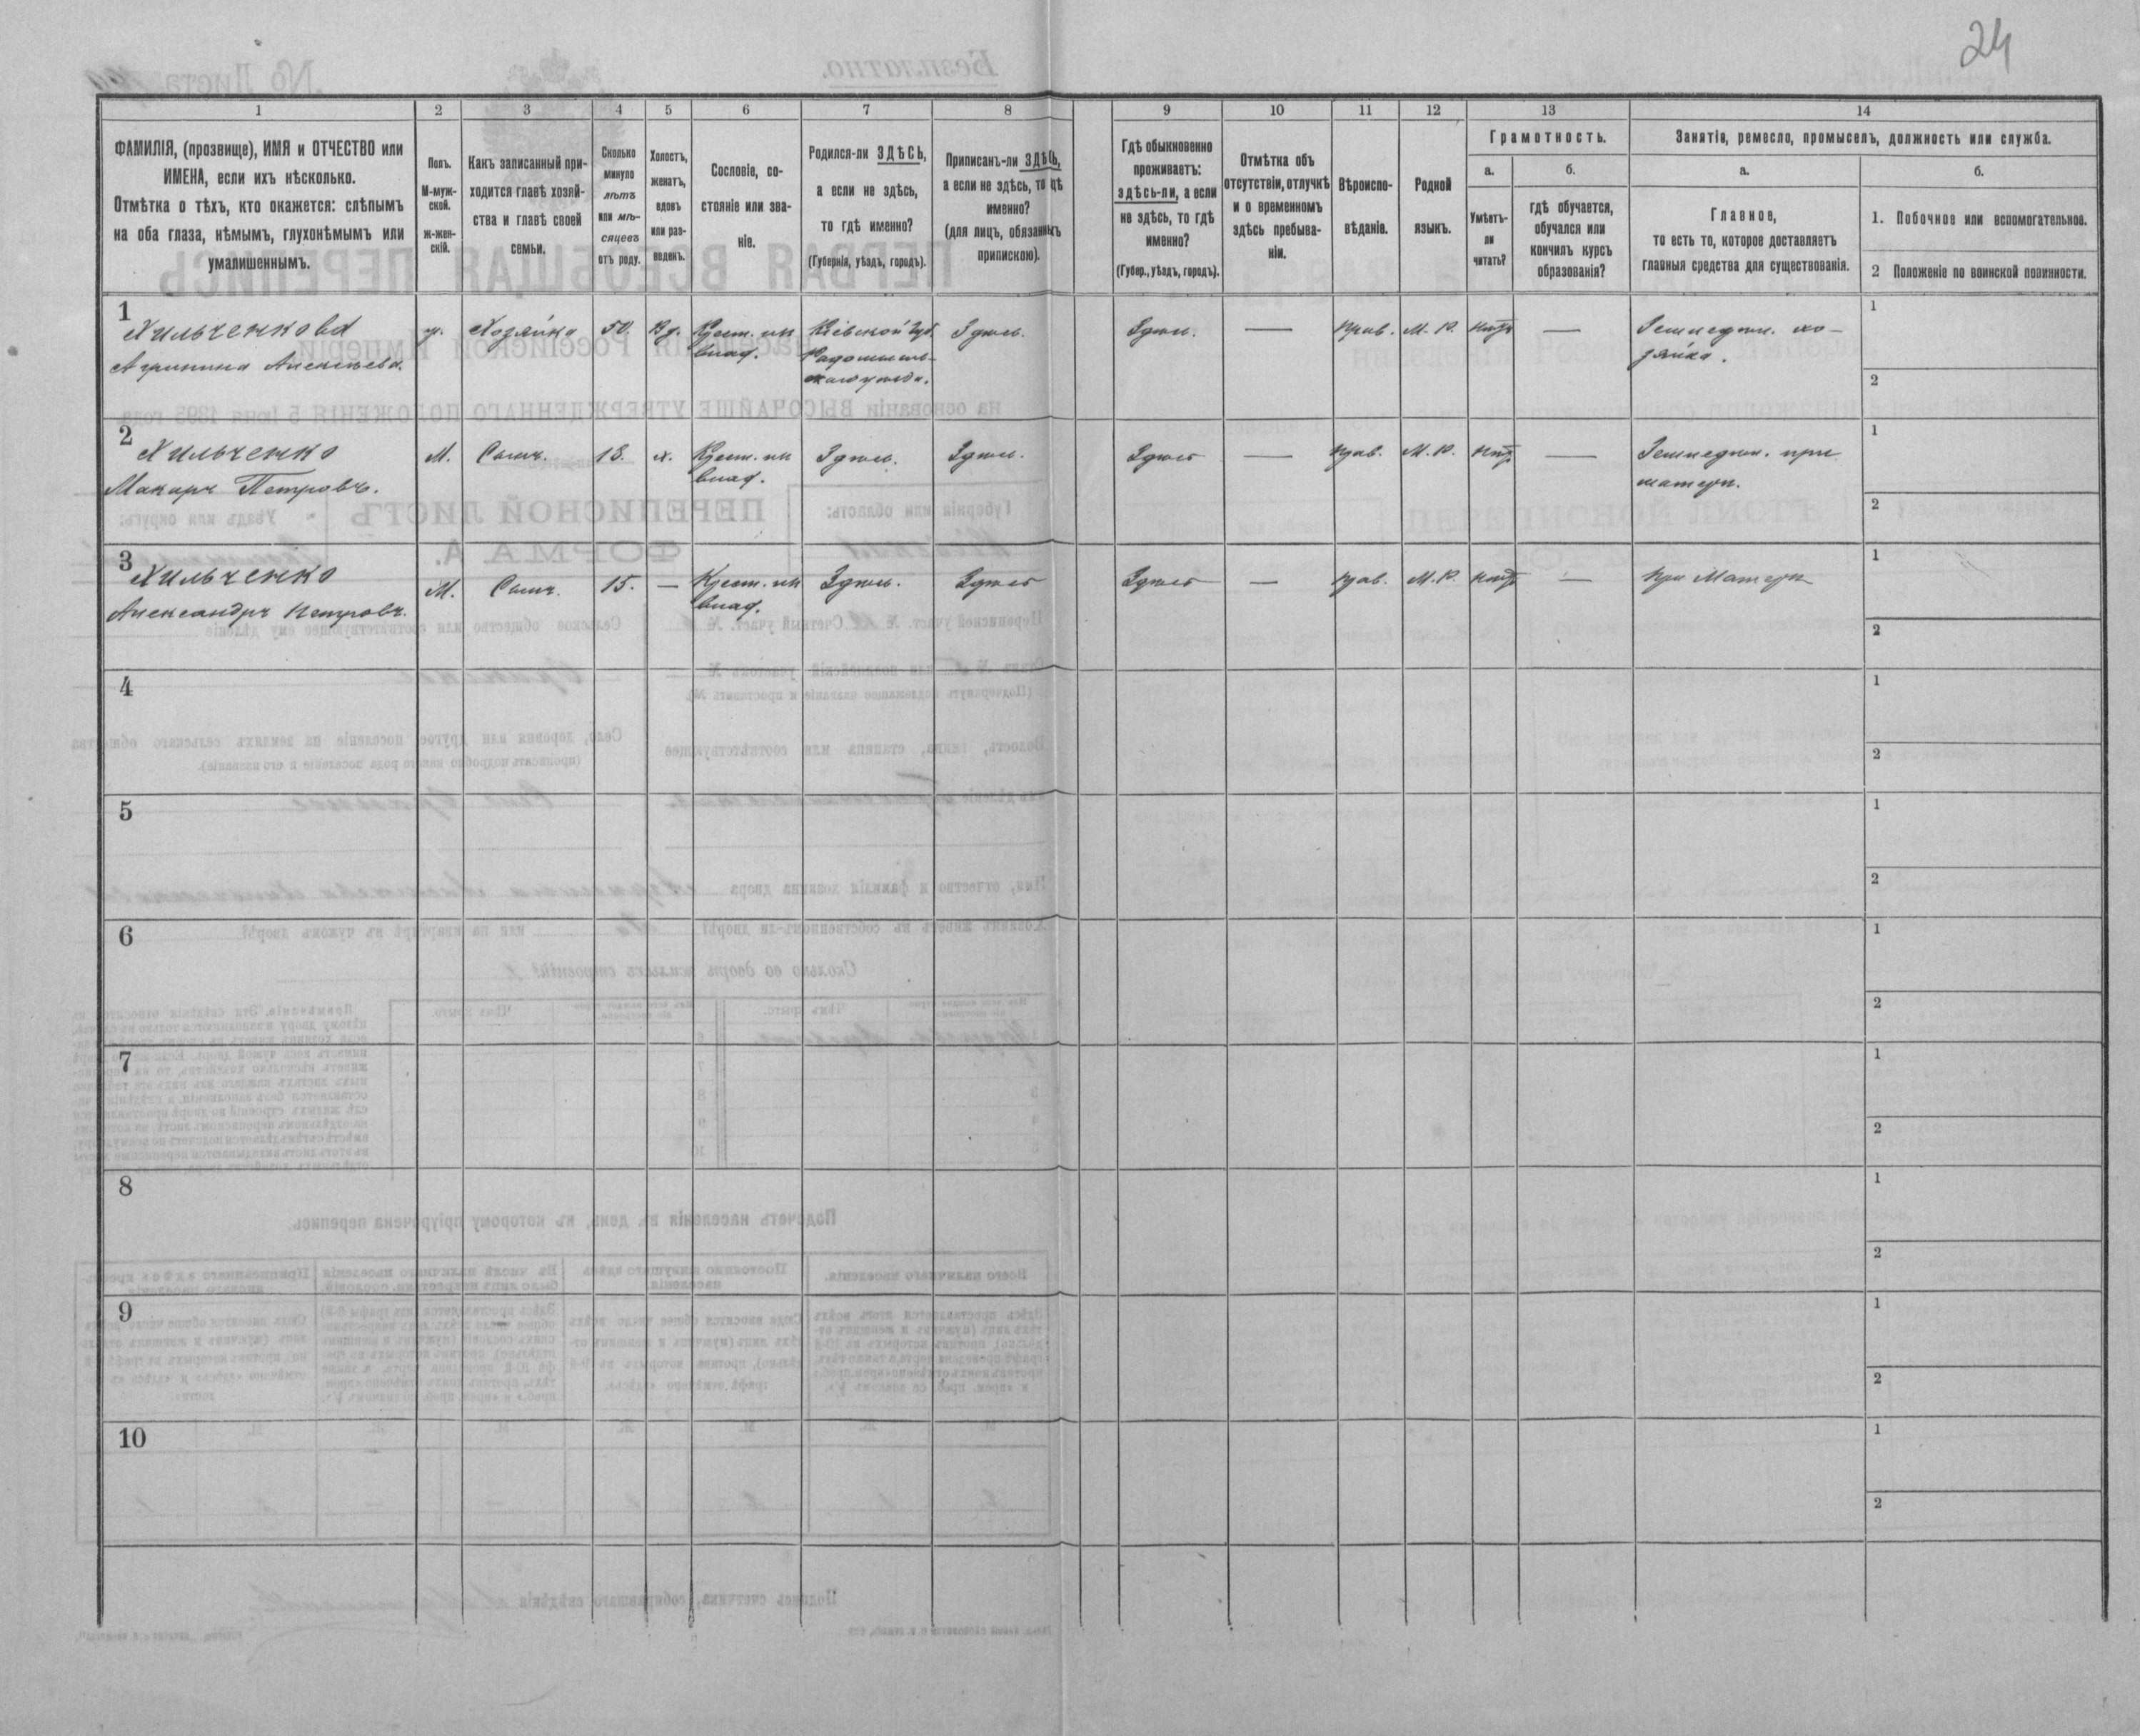 24
1 2 3 4 5 6 7 8 9 10 11 12 13 14
ФАМИЛІЯ, (прозвище), ИМЯ и ОТЧЕСТВО или
ИМЕНА, если ихъ нѣсколько.
Отмѣтка о тѣхъ, кто окажется: слѣпымъ
на оба глаза, нѣмымъ, глухонѣмымъ или
умалишеннымъ.
Полъ.
М-муж-
ской.
ж-жен-
скій.
Какъ записанный при-
ходится главѣ хозяй-
ства и главѣ своей
семьи.
Сколько
минуло
лѣтъ
или мѣ-
сяцевъ
отъ роду.
Холостъ,
женатъ,
вдовъ
или раз-
веденъ.
Сословіе, со-
стояніе или зва-
ніе.
Родился-ли ЗДѢСЬ,
а если не здѣсь,
то гдѣ именно?
(Губернія, уѣздъ, городъ).
Приписанъ-ли ЗДѢСЬ,
а если не здѣсь, то гдѣ
именно?
(для лицъ, обязанныхъ
припискою).
Гдѣ обыкновенно
проживаетъ:
здѣсь-ли, а если
не здѣсь, то гдѣ
именно?
(Губер., уѣздъ, городъ).
Отмѣтка объ
отсутствіи, отлучкѣ
и о временномъ
здѣсь пребыва-
ніи.
Вѣроиспо-
вѣданіе.
Родной
языкъ.
Грамотность.
а.
Умѣетъ-
ли
читать?
б.
гдѣ обучается,
обучался или
кончилъ курсъ
образованія?
Занятія, ремесло, промыселъ, должность или служба.
а.
Главное,
то есть то, которое доставляетъ
главныя средства для существованія.
б.
1. Побочное или вспомогательное.
2 Положеніе по воинской повинности.
1
Хильченкова
Агрипина Алексѣева.
Хозяйка
50.
Вд.
Крест. ин
влад.
Кіевской Губ.
Радомысль-
скаго уѣзда.
Здѣсь.
Здѣсь.
—
Прав.
М. Р.
нѣтъ
—
Земледѣл. хо-
зяйка.
1
2
2
Хильченко
Макаръ Петровъ.
М.
Сынъ.
18.
х.
Крест. ин
влад.
Здѣсь.
Здѣсь.
Здѣсь
—
прав.
М. Р.
нѣтъ
—
Земледѣл. при
матери.
1
2
3
Хильченко
Александръ Петровъ.
М.
Сынъ.
15.
—
Крест. ин
влад.
Здѣсь.
Здѣсь
Здѣсь
—
прав.
М. Р.
нѣтъ
—
при Матери
1
2
4
1
2
5
1
2
6
1
2
7
1
2
8
1
2
9
1
2
10
1
2